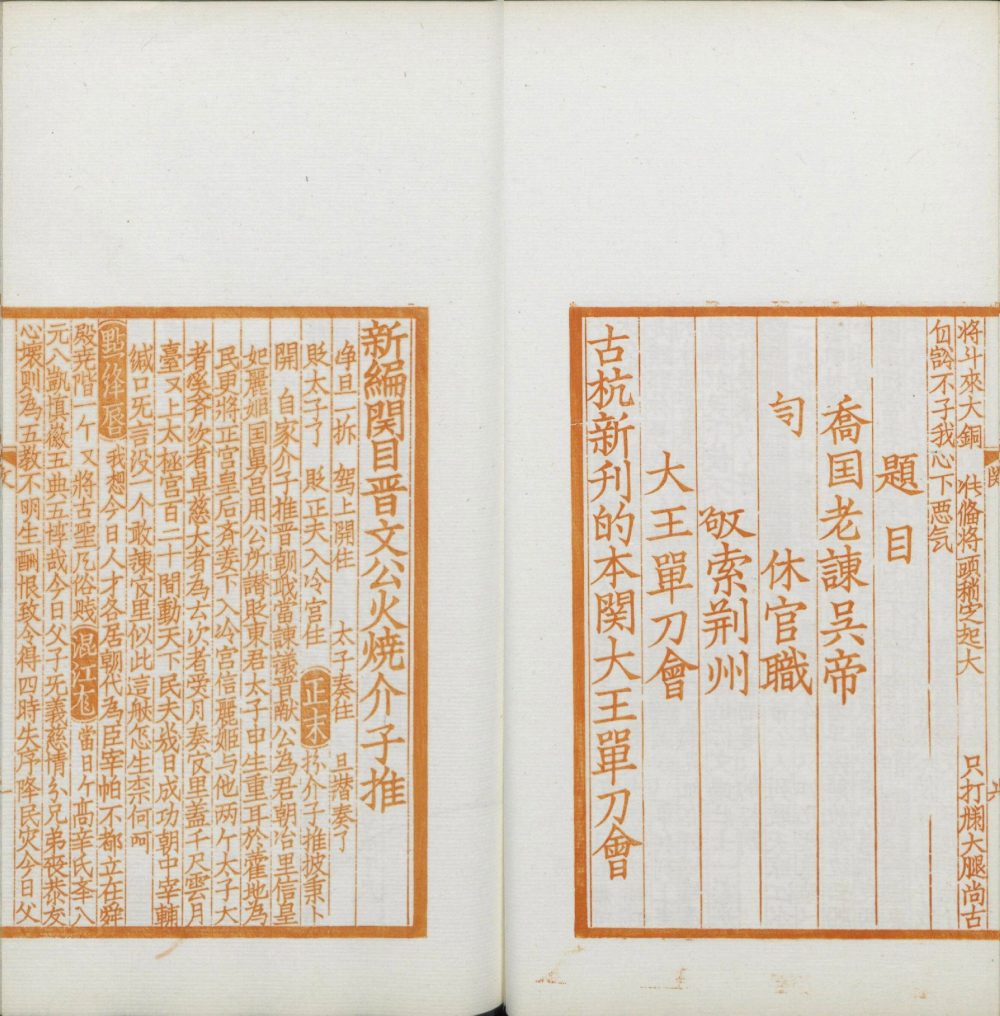 将斗來大銅　　备将頭稍定起大　　只打爛大腿尚古
自訟不子我心下悪气
題目
喬国老諫吴帝
司　　休官職
　　　索荆州
大王單刀會
古杭新刊的本関大王單刀會
新編関目晋文公火燒介子推
净旦一折　駕上開住　太子奏住　旦替奏了
貶太子了　貶正天入冷宫住　正末扮介子推披秉卜
開　自家介子推晋朝職當諫議晋献公為君朝冶里信皇
妃麗姬国舅吕用公所譖貶東君太子申生重耳於藿地為
民更将正宫皇后齐姜下入冷宫信麗姬与他两个太子大
者奚齐次者卓慈大者為六次者受月奏官里盖千尺雲月
臺又上太極宫百二十間動天下民夫幾日成功朝中宰輔
缄口无言没一个敢諫官里似此這般怎生柰何呵
點絳唇　我想今日人才各居朝代為臣宰帕不都立在舜
殿尭階一个又將古聖凡俗賤　混江竜　當日个髙辛氏夆八
元八凱慎徽五典五惇哉今日父子无義慈情分兄弟丧恭友
心壞則為五教不明生酬恨致令得四時失序降民灾今日父